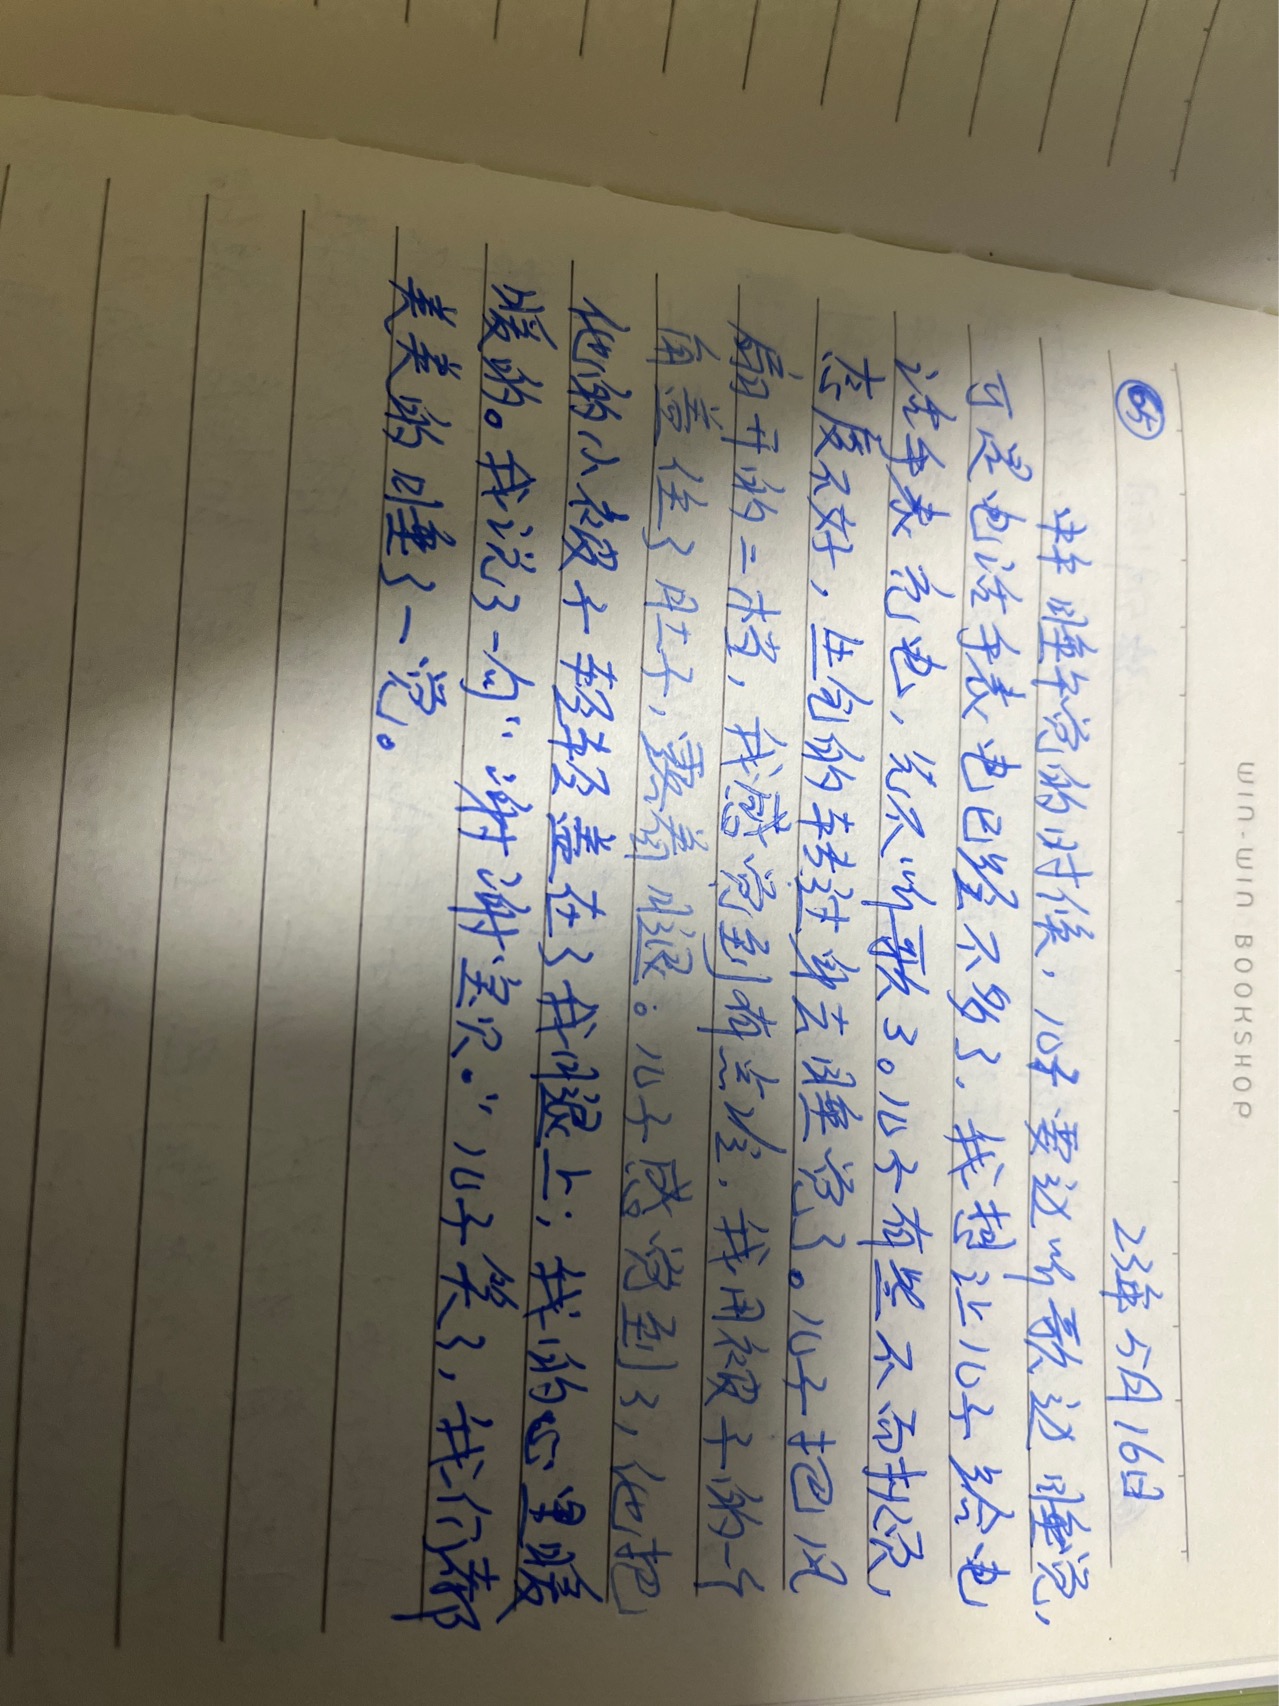 WIN-WIN BOOKSHOP
65 23年5月16日
中午睡午觉的时候，儿子要边听歌边睡觉，
可是电话手表电已经不多了．我想让儿子给电
话手表充电，先不听歌了。儿子有些不耐烦，
态度不好，生气的转过身去睡觉了。儿子把风
扇开的二档，我感觉到有点冷．我用被子的一个
角盖住了肚子，露着腿。儿子感觉到了，他把
他的小被子轻轻盖在了我腿上；我的心里暖
暖的。我说了一句“谢谢宝贝。”儿子笑了，我们都
美美的睡了一觉。